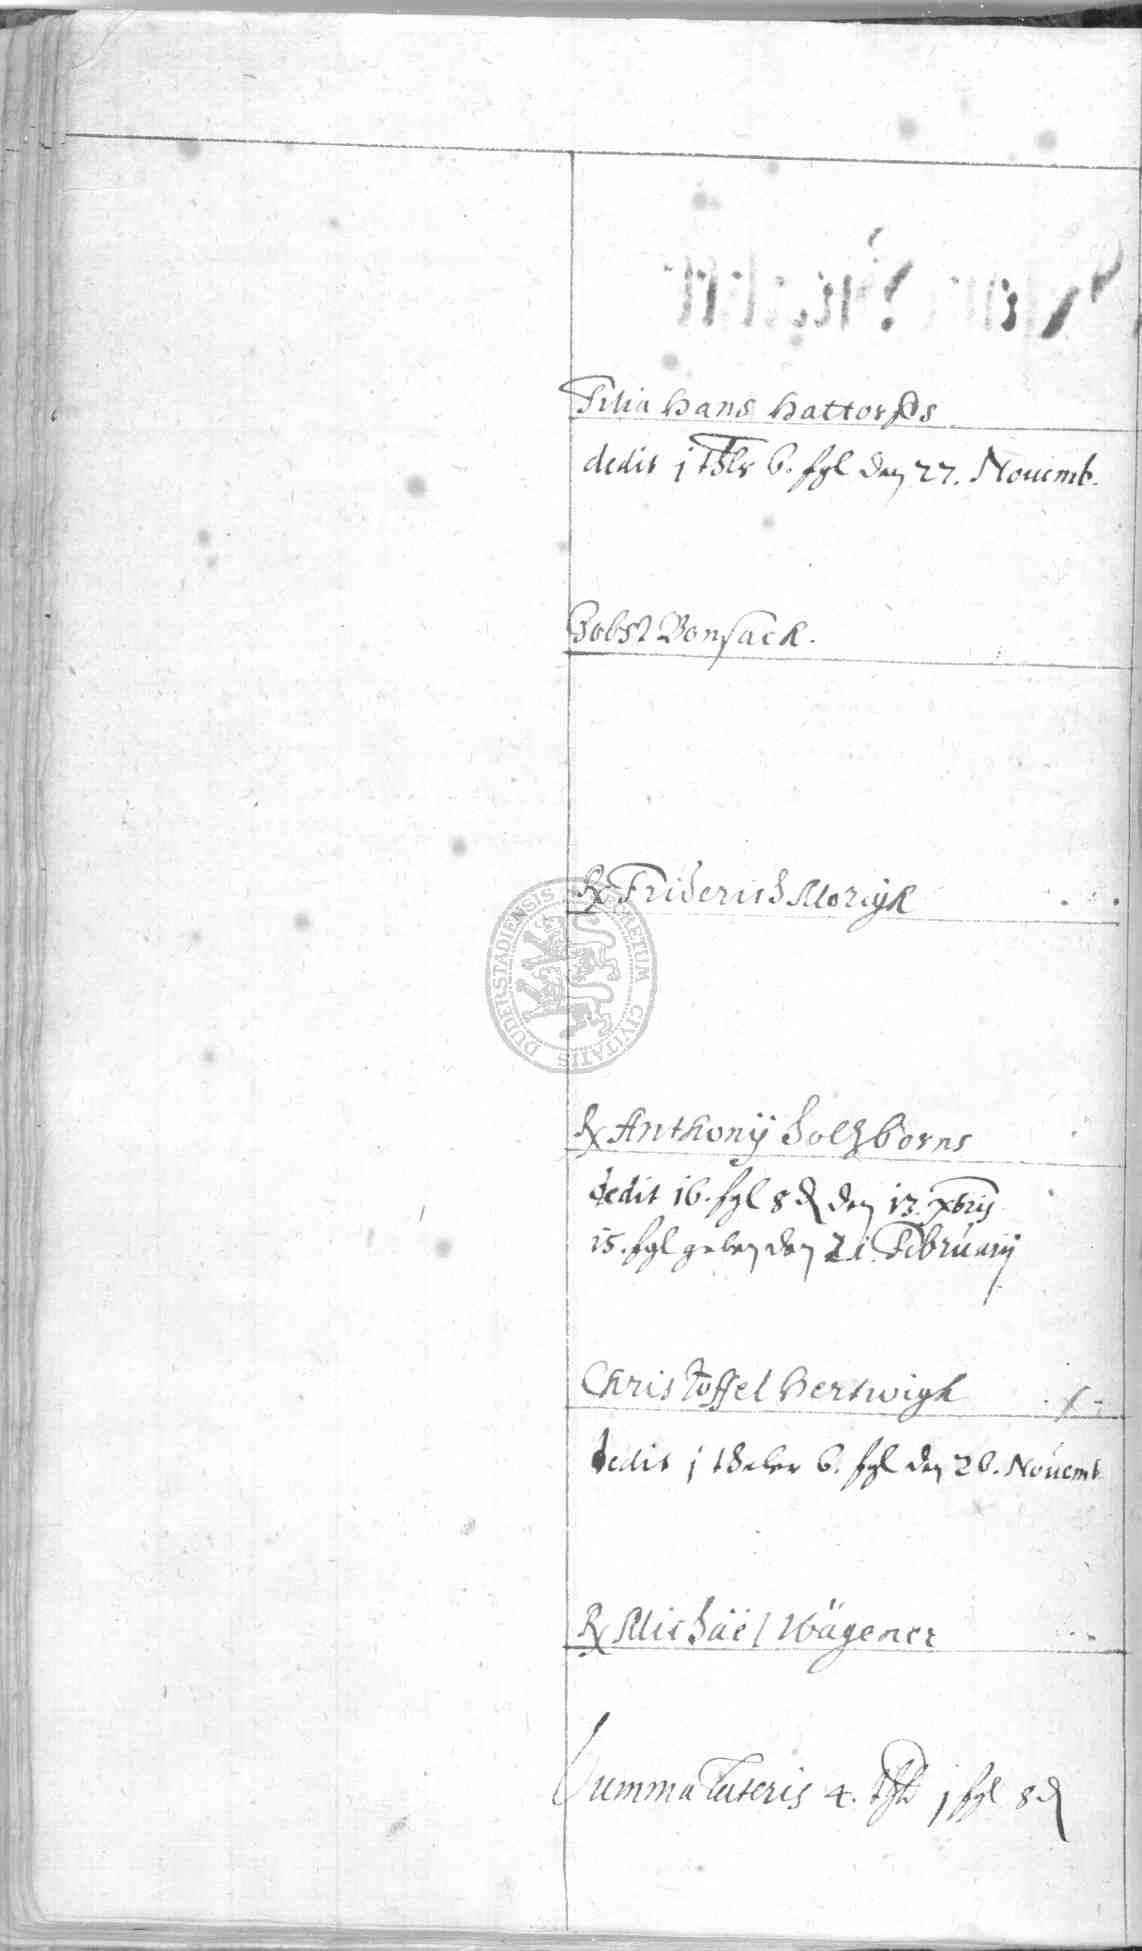 Filia Hans Hattorffs
dedit j thlr 6. fgl den 27. Nouemb.
Jobst Bonsack.
Rx Friderich Morigk
Rx Anthonij Holtzborns
dedit 16. fgl 8 d den 13. xbris
15. fgl geben den 21. Februarij
Christoffel Hertwigk
dedit j thaler 6. fgl den 26. Nouemb
Rx Michäel Wägener
Summa lateris 4. thlr j fgl 8 d
SECRETUM CIVITATIS DUDERSTADIENSIS